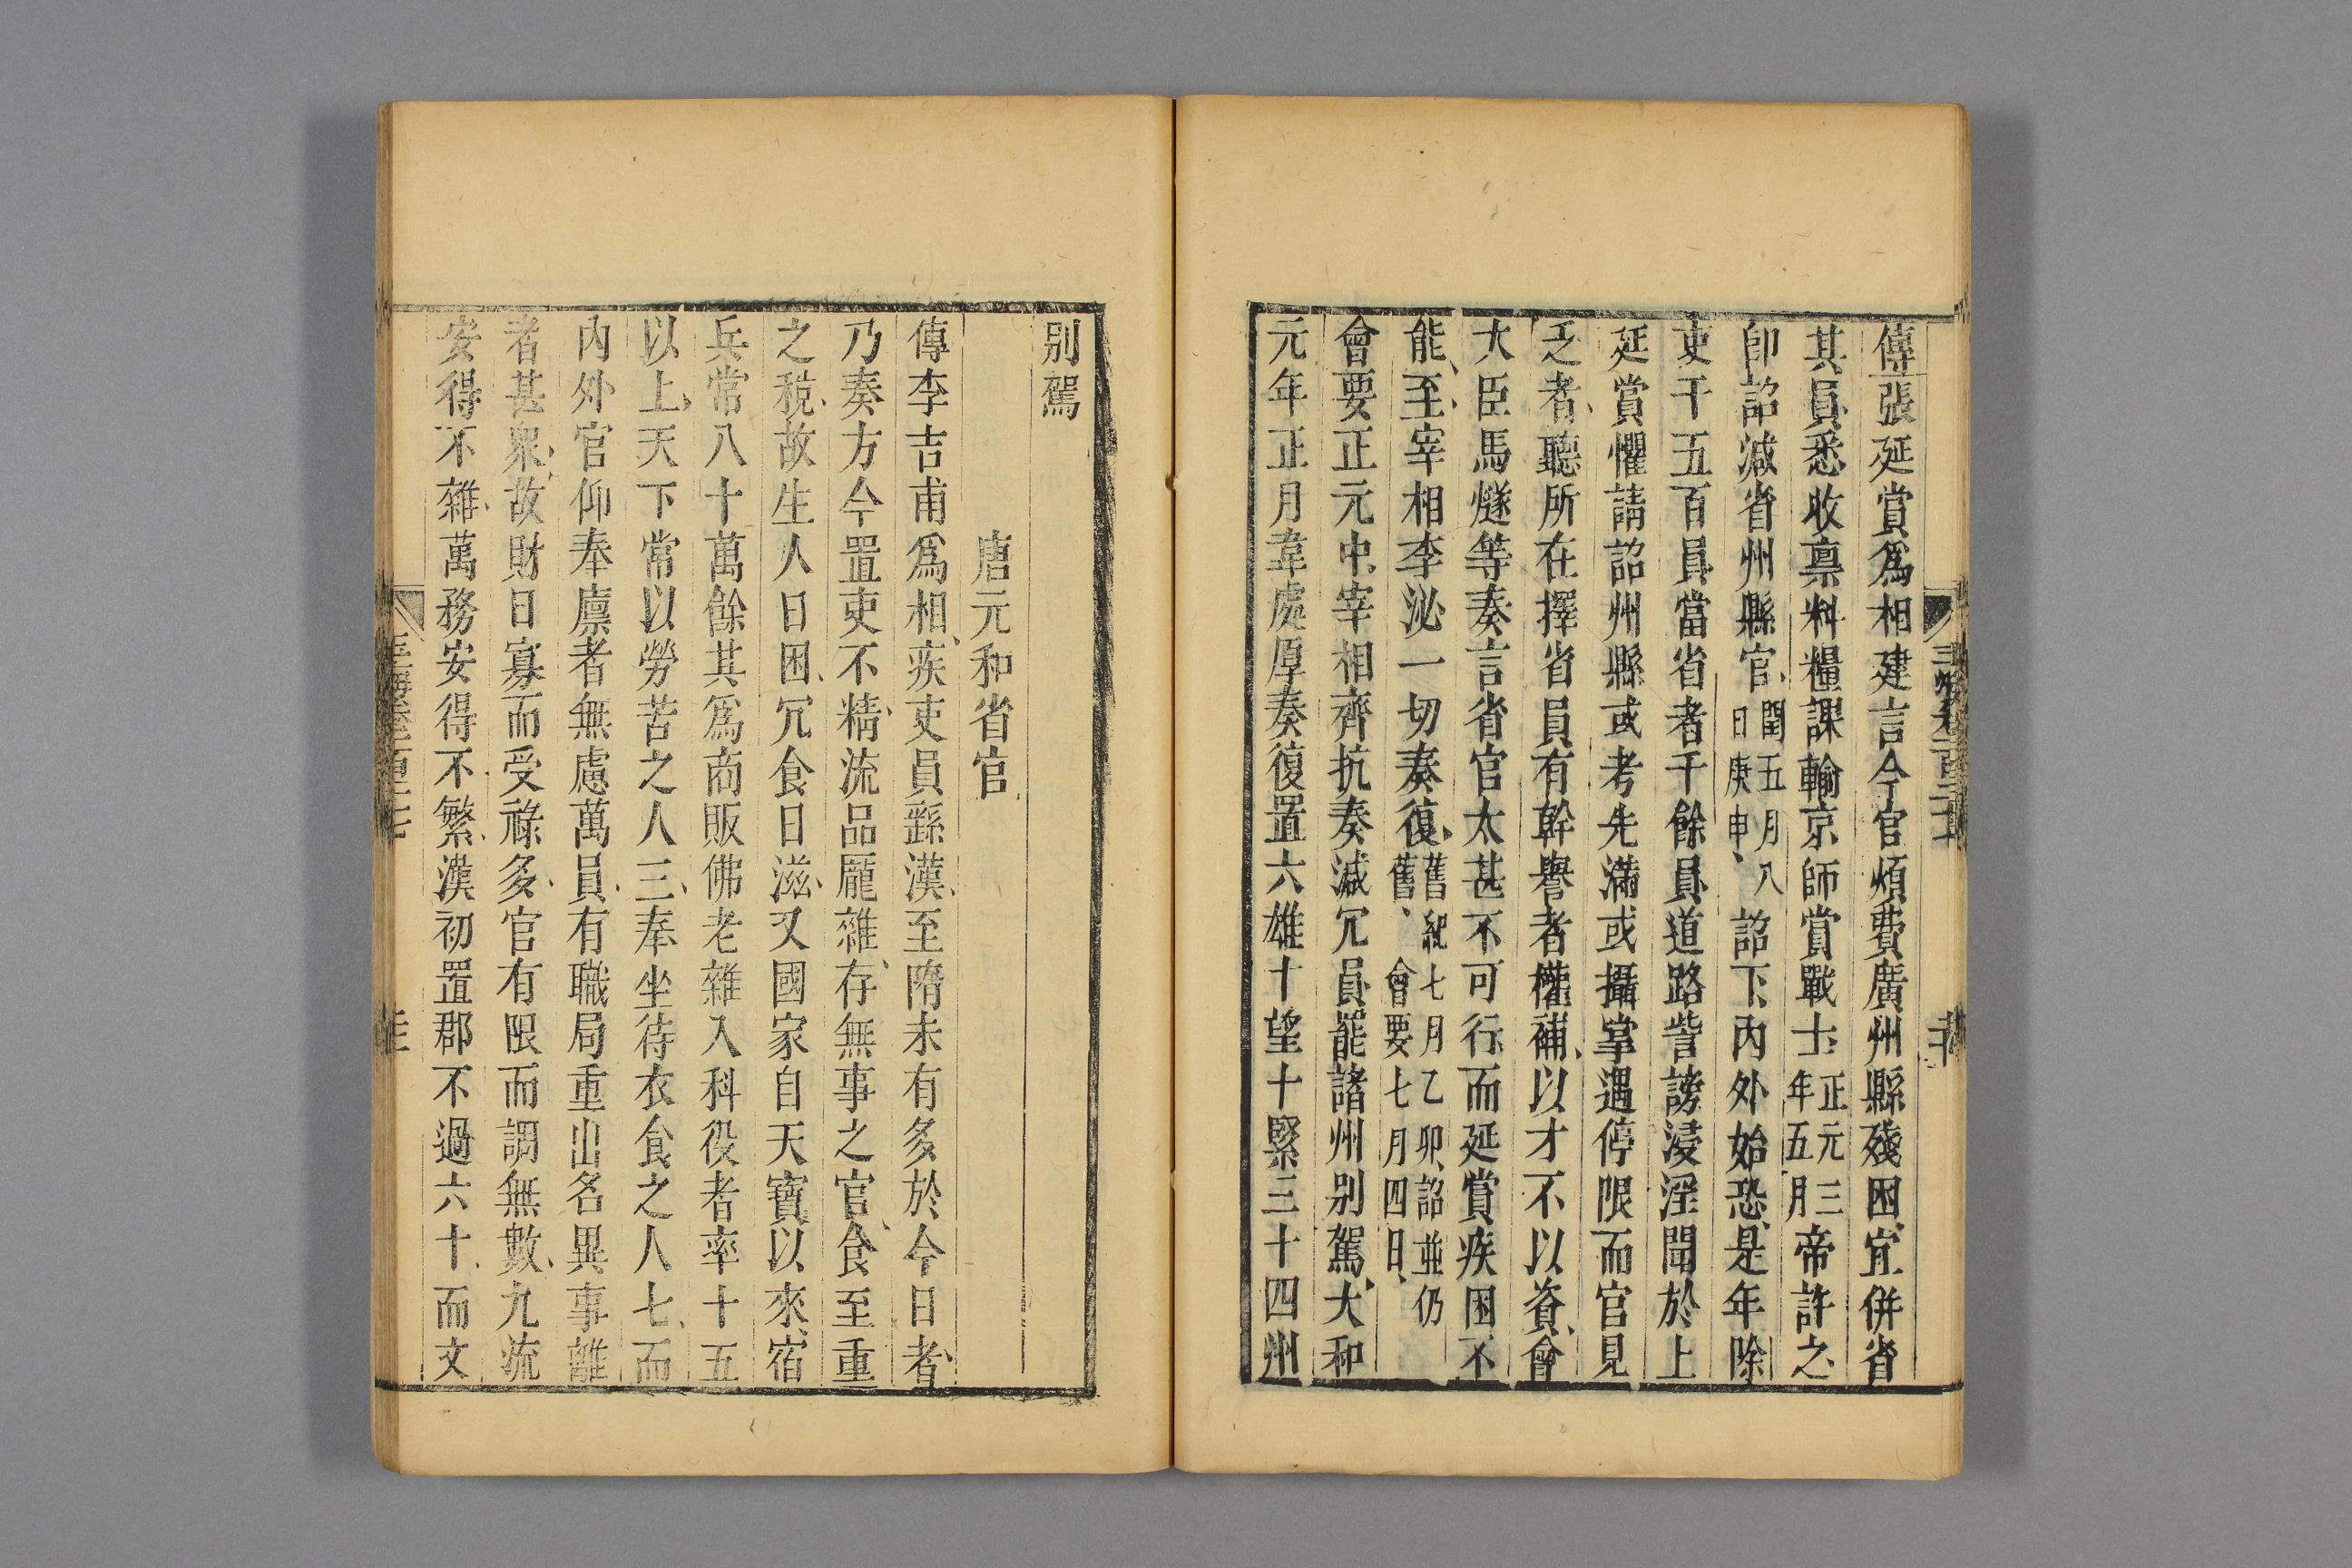 傳張延賞爲相建言今官煩費廣州縣殘困宜併省
其員悉收禀料糧課輸京師賞戰士正元三年五月帝許之
卽詔減省州縣官閏五月八日庚申詔下内外始恐是年除
吏千五百員當省者千餘員道路訾謗浸淫聞於上
延賞懼請詔州縣或考先滿或攝掌遇停限而官見
乏者聽所在擇省員有幹譽者權補以才不以資會
大臣馬燧等奏言省官太甚不可行而延賞疾困不
能至宰相李泌一切奏復舊紀七月乙卯詔並仍舊會要七月四日
會要正元中宰相齊抗奏減冗員罷諸州別駕大和
元年正月韋處厚奏復置六雄十望十緊三十四州
別駕
唐元和省官
傳李吉甫爲相疾吏員繇漢至隋未有多於今日者
乃奏方今置吏不精流品厖雜存無事之官食至重
之稅故生人日困冗食日滋又國家自天寶以來宿
兵常八十萬餘其爲商販佛老雜入科役者率十五
以上天下常以勞苦之人三奉坐待衣食之人七而
内外官仰奉廪者無慮萬員有職局重出名異事離
者甚衆故財日寡而受祿多官有限而調無數九流
安得不雜萬務安得不繁漢初置郡不過六十而文